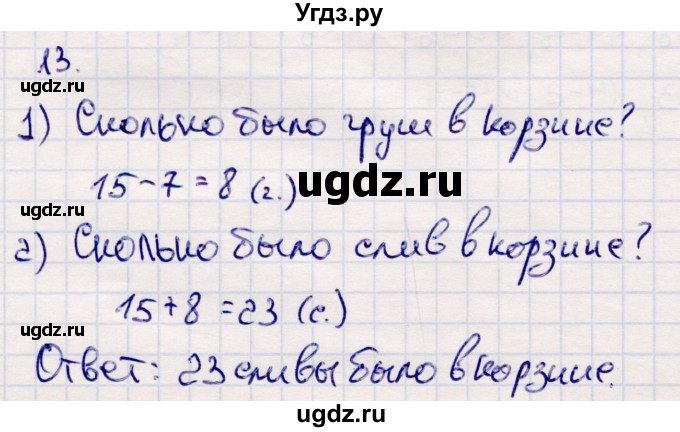 Угдз.ру
13.
ugdz.ru
ugdz.ru
1) Сколько было груш в корзине?
15-7=8 (г.)
ugdz.ru
ugdz.ru
2) Сколько было слив в корзине?
15+8=23 (с.)
ugdz.ru
ugdz.ru
Ответ: 23 сливы было в корзине.
ugdz.ru
ugdz.ru